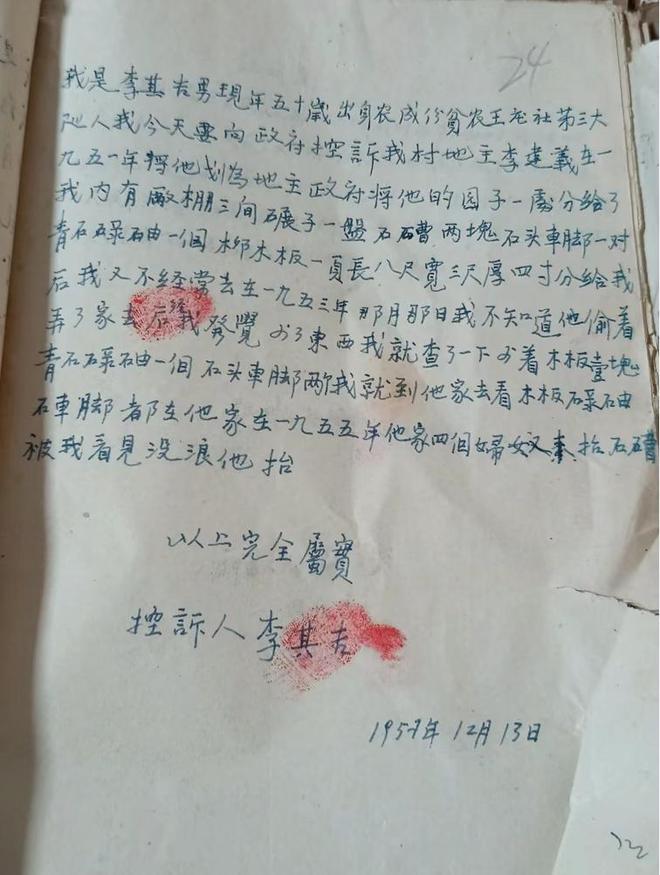 24
我是李其吉男現年五十歲出身农成份贫农王老社第三大
队人我今天要向政府控訴我村地主李建義在一
九五一年将他划為地主政府将他的园子一處分給了
我内有廠棚三间碾子一盤石石曹两塊石头車脚一对
青石碌石由一個柳木板一頁長八尺寬三尺厚四寸分給我
后我又不经常去在一九五三年那月那日我不知道他偷着
弄了家去后经我發覺少了東西我就查了一下少着木板壹塊
青石碌石由一個石头車脚两我就到他家去看木板碌石由
石車脚都在他家在一九五五年他家四個婦女又来抬石石曹
被我看見没浪他抬
以上完全屬實
控訴人李其吉
1957年12月13日